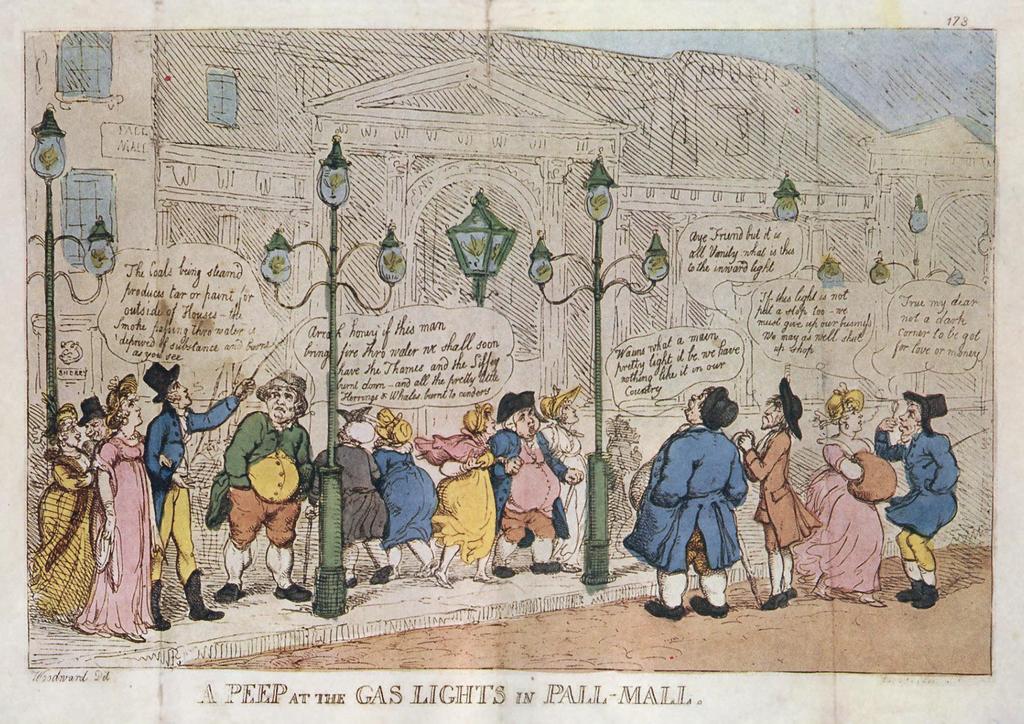 173
PALL
MALL
The Coals being steamd
produces tar or paint for
outside of Houses – the
Smoke passing thro water is
deprived of substance and burns
as you see
Arrah honey if this man
bring fire thro water we shall soon
have the Thames and the Liffey
burnt down – and all the pretty little
Herrings & Whales burnt to cinders
Wauns what a main
pretty light it be we have
nothing like it in our
Country
Aye Friend but it is
all Vanity what is this
to the inward light
If this light is not
put a stop too – we
must give up our business
We may as well shut
up shop
True my dear
not a dark
corner to be got
for love or money
SHERRY
Woodward Del
A PEEP AT THE GAS LIGHTS IN PALL-MALL.